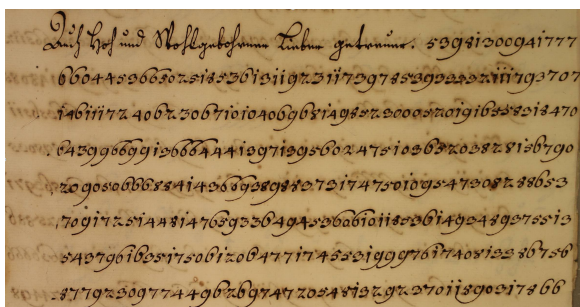 Auch Hoch und Wohlgebohrner Lieber getreuer. 53981300941777
6604453665025185361311923117397853933332111793707
14611177240623067101040696814985230005201916558318470
643996699136664441397139560247510365203828156790
20905066688414366958988373174750109547308288653
7091725144814765933649453606101185361493489375513
5437961635175061206477174553199976174081338 6756
8779230977449626974772054813292370118903178 66